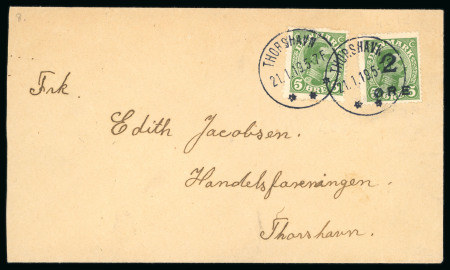 8.
THORSHAVN
21.1.19.5-7F.
5 ØRE
THORSHAVN
21.1.19.5-
2
ØRE
Frk.
Edith Jacobsen.
Handelsforeningen.
Thorshavn.